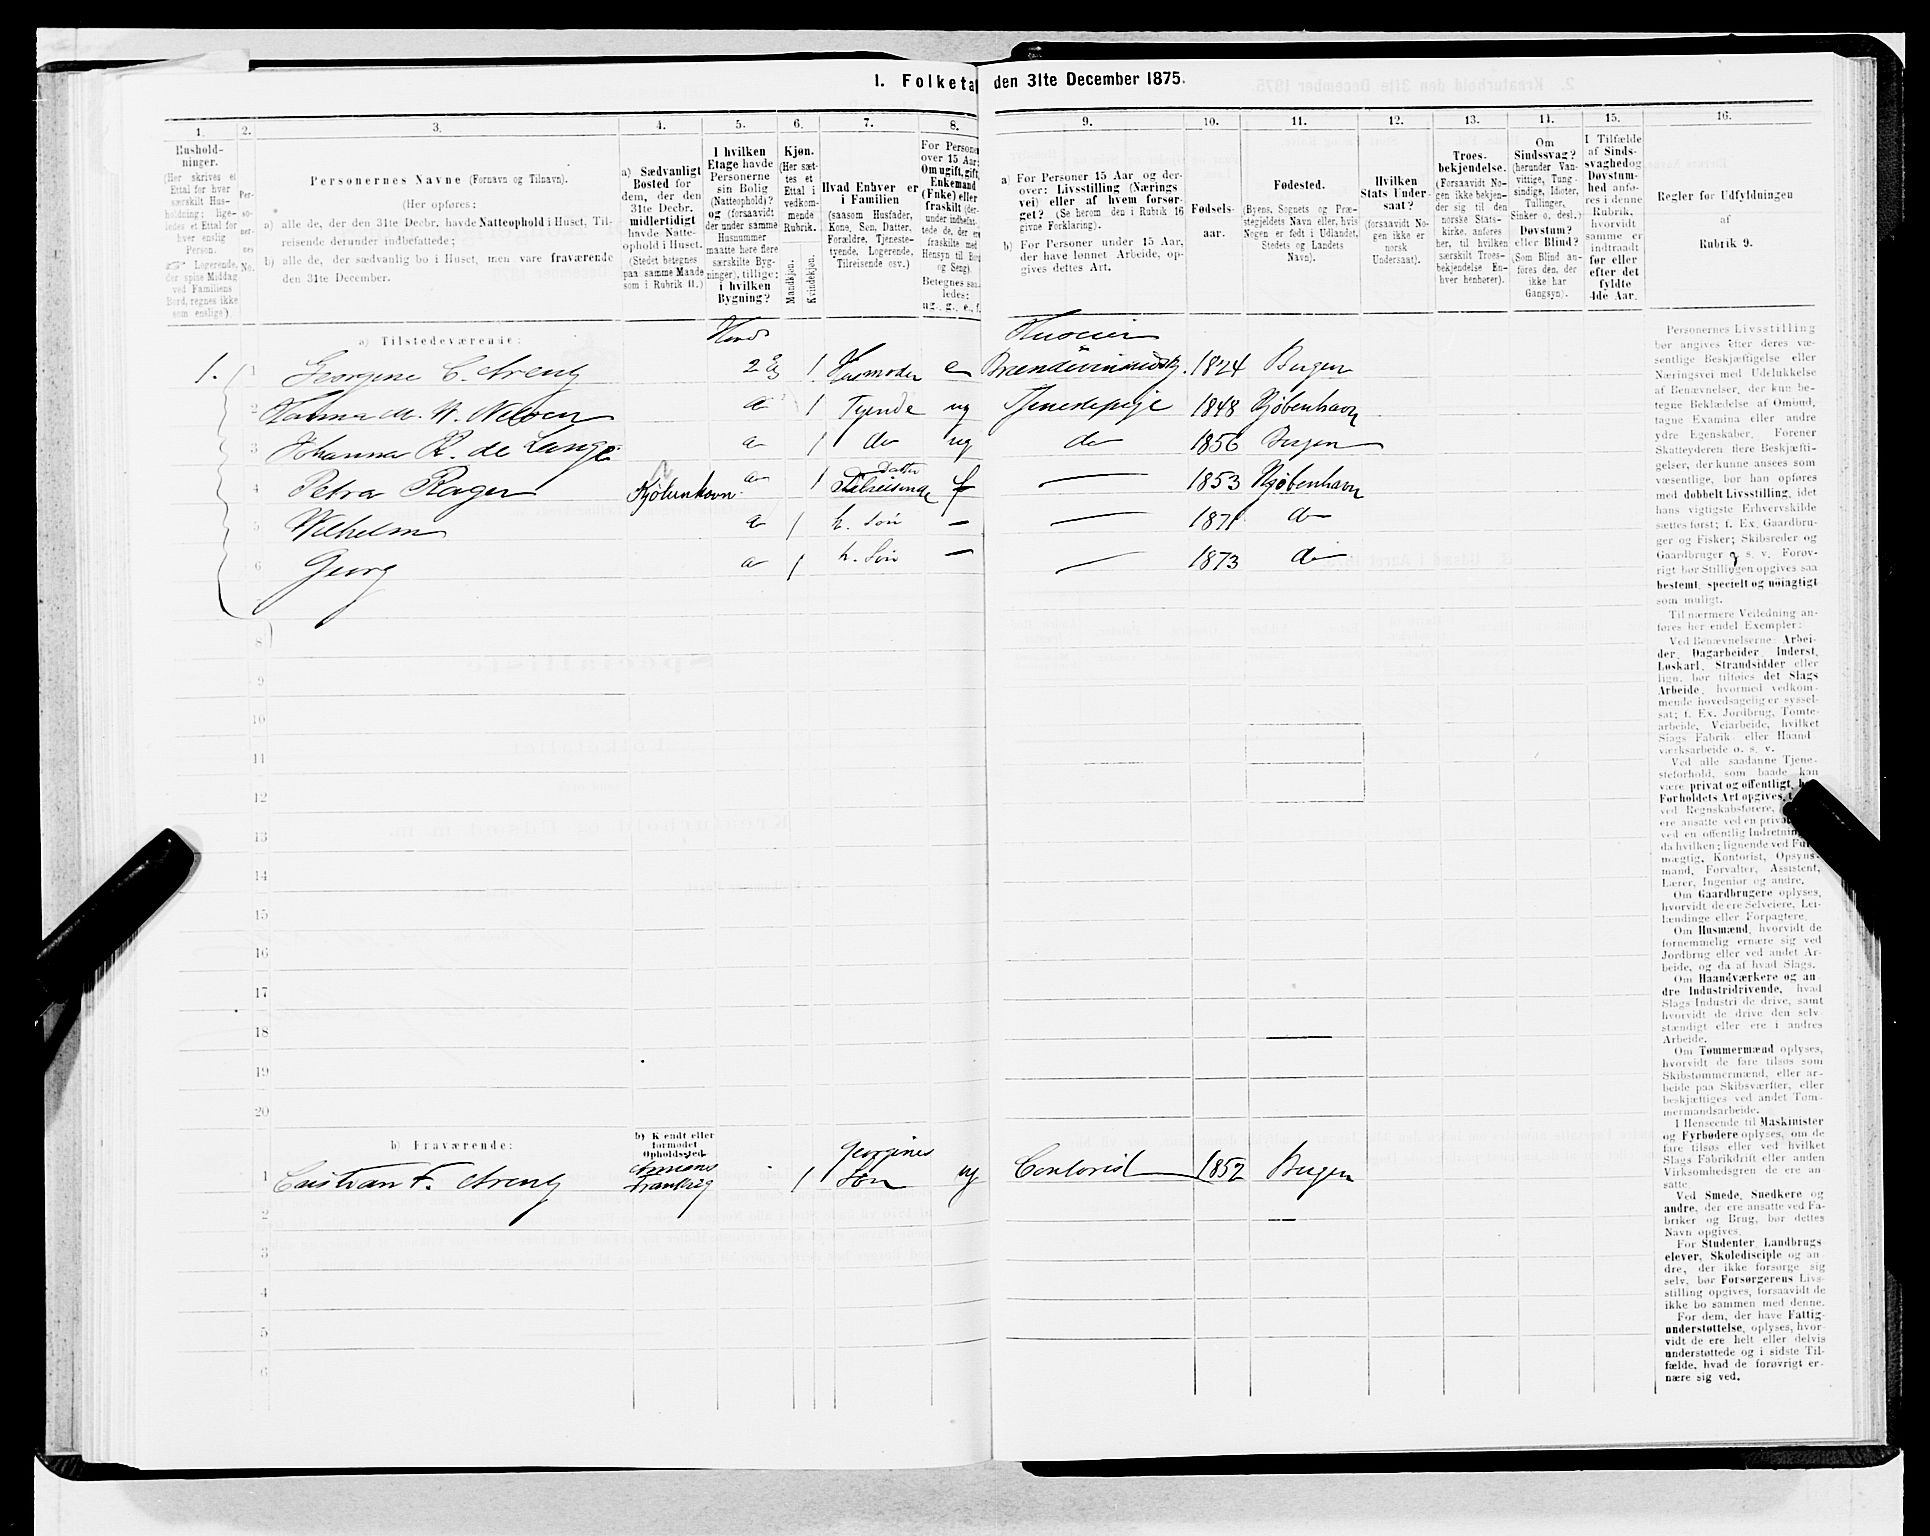 1. Folketal den 31te December 1875.
1.
2.
3.
4.
5.
6.
7.
8.
9.
10.
11.
12.
13.
14.
15.
16.
Hushold-
ninger.
(Her skrives et
Ettal for hver
særskilt Hus-
holdning; lige-
ledes et Ettal for
hver enslig
Person.
☞ Logerende,
der spise Middag
ved Familiens
Bord, regnes ikke
som enslige).
Per-
so-
ner-
nes
No.
Personernes Navne (Fornavn og Tilnavn).
(Her opføres:
a) alle de, der den 31te Decbr. havde Natteophold i Huset, Til-
reisende derunder indbefattede;
b) alle de, der sædvanlig bo i Huset, men vare fraværende
den 31te December.
a) Sædvanligt
Bosted for
dem, der den
31te Decbr.
midlertidigt
havde Natte-
ophold i Huset.
(Stedet betegnes
paa samme Maade
som i Rubrik 11.)
I hvilken
Etage havde
Personerne
sin Bolig
(Natteophold)?
og (forsaavidt
der under samme
Husnummer
maatte høre flere
særskilte Byg-
ninger), tillige:
i hvilken
Bygning?
Kjøn.
(Her sæt-
tes et
Ettal i
vedkom-
mende
Rubrik.
Mandkjøn.
Kvindekjøn.
Hvad Enhver er
i Familien
(saasom Husfader,
Kone, Søn, Datter,
Forældre, Tjeneste-
tyende, Logerende,
Tilreisende osv.)
For Personer
over 15 Aar:
Om ugift, gift,
Enkemand
(Enke) eller
fraskilt
Betegnes saa-
ledes:
ug., g., e., f.
a) For Personer 15 Aar og der-
over: Livsstilling (Nærings-
vei) eller af hvem forsør-
get? (Se herom den i Rubrik 16
givne Forklaring).
b) For Personer under 15 Aar,
der have lønnet Arbeide, op-
gives dettes Art.
Fødsels-
aar.
Fødested.
(Byens, Sognets og Præ-
stegjeldets Navn eller, hvis
Nogen er født i Udlandet,
Stedets og Landets
Navn).
Hvilken
Stats Under-
saat?
(forsaavidt No-
gen ikke er
norsk
Undersaat).
Troes-
bekjendelse.
(Forsaavidt No-
gen ikke bekjen-
der sig til den
norske Stats-
kirke, anføres
her, til hvilken
særskilt Troes-
bekjendelse En-
hver henhører).
Om
Sindssvag?
(herunder Van-
vittige, Tung-
sindige, Idioter,
Tullinger,
Sinker o. desl.)
Døvstum?
eller Blind?
(Som Blind an-
føres den, der
ikke har
Gangsyn).
I Tilfælde
af Sinds-
svaghed og
Døvstum-
hed anfø-
res i denne
Rubrik,
hvorvidt
samme er
indtraadt
før eller
efter det
fyldte
4de Aar.
Regler for Udfyldningen
af
Rubrik 9.
a) Tilstedeværende:
1. 1 Georgine C. Areng 2 Eg 1 Husmoder e 1824 Bergen
2 M. N. Nilsen 1 Tyende ug Tjenestepige 1848 Kjøbenhavn
3 Johanna R. de Lange 1 do ug do 1856 Bergen
4 Petra Rager Kjøbenhavn 1 Datter Tilreisende 1853 Kjøbenhavn
5 Wilhelm 1 h. Søn 1871 do
6 Georg 1 h. Søn 1873 do
8
9
10
11
12
13
14
15
16
17
18
19
20
b) Fraværende:
b) Kjendt eller
formodet
Opholdssted.
1 Cristian F. Areng Amiens Frankrig 1 Georgines Søn ug Contorist 1852 Bergen
2
3
4
5
6
Personernes Livsstilling
bør angives efter deres væ-
sentlige Beskjæftigelse eller
Næringsvei med Udelukkelse
af Benævnelser, der kun be-
tegne Beklædelse af Ombud,
tagne Examina eller andre
ydre Egenskaber. Forener
Skatteyderen flere Beskjæfti-
gelser, der kunne ansees som
væsentlige, bør han opføres
med dobbelt Livsstilling, idet
hans vigtigste Erhvervskilde
sættes først; f. Ex. Gaardbru-
ger og Fisker; Skibsreder og
Gaardbruger o. s. v. Forøv-
rigt bør Stillingen opgives saa
bestemt, specielt og nöiagtigt
som muligt.
Til nærmere Veiledning an-
føres her endel Exempler:
Ved Benævnelserne: Arbei-
der, Dagarbeider, Inderst,
Løskarl, Strandsidder eller
lign. bør tilføies det Slags
Arbeide, hvormed vedkom-
mende hovedsagelig er syssel-
sat; f. Ex. Jordbrug, Tomte-
arbeide, Veiarbeide, hvilket
Slags Fabrik- eller Haand-
værksarbeide o. s. v.
Ved alle saadanne Tjene-
steforhold, som baade kan
være privat og offentligt, bør
Forholdets Art opgives,
ved Regnskabsførere,
ere ansatte ved en privat
ved en offentlig Indretning
da hvilken; lignende ved Fuld-
mægtig, Kontorist, Opsyns-
mand, Forvalter, Assistent,
Lærer, Ingeniør og andre.
Om Gaardbrugere oplyses,
hvorvidt de ere Selveiere, Lei-
lændinge eller Forpagtere.
Om Husmænd, hvorvidt de
fornemmelig ernære sig ved
Jordbrug eller ved andet Ar-
beide, og da af hvad Slags.
Om Haandværkere og an-
dre Industridrivende, hvad
Slags Industri de drive, samt
hvorvidt de drive den selv-
stændigt eller ere i andres
Arbeide.
Om Tømmermænd oplyses,
hvorvidt de fare tilsøs som
Skibstømmermænd, eller ar-
beide paa Skibsværfter, eller
beskjæftiges ved andet Tøm-
mermandsarbeide.
I Henseende til Maskinister
og Fyrbødere oplyses, om de
fare tilsøs eller ved hvilket
Slags Fabrikdrift eller anden
Virksomhedsgren de ere an-
satte.
Ved Smede, Snedkere og
andre, der ere ansatte ved Fa-
briker og Brug, bør dettes
Navn opgives.
For Studenter, Landbrugs-
elever, Skoledisciple og an-
dre, der ikke forsørge sig
selv, bør Forsørgerens Livs-
stilling opgives, forsaavidt de
ikke bo sammen med denne.
For dem, der have Fattig-
understøttelse, oplyses, hvor-
vidt de ere helt eller delvis
understøttede og i sidste Til-
fælde, hvad de forøvrigt er-
nære sig ved.